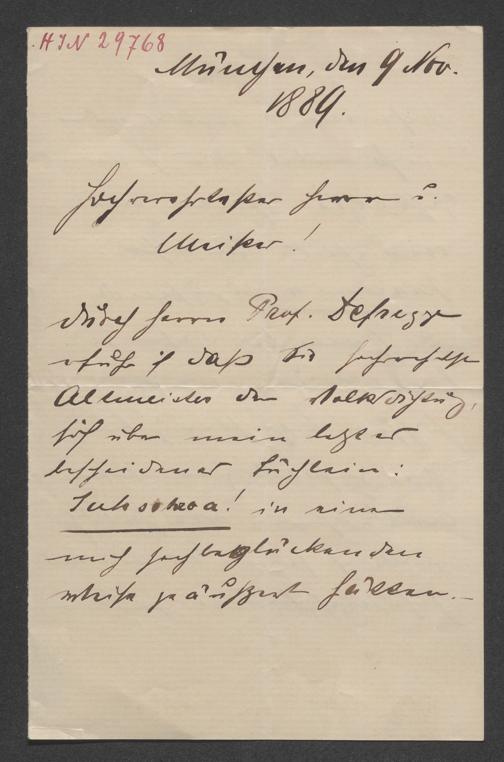 HIN 29768
München, den 9 Nov.
1889.
Hochverehrtester Herr u.
Meister!
Durch Herrn Prof. Defregger
erfuhr ich daß Sie hochverehrter
Altmeister der Volksdichtung,
sich über mein letztes
bescheidenes Büchlein:
in einer
mich hochbeglückenden
Weise geäußert hätten.–